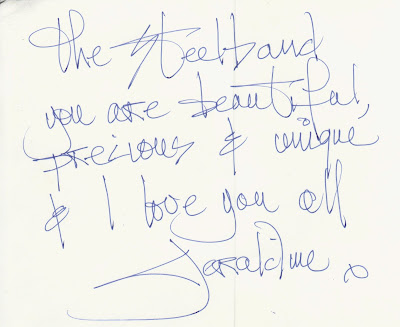 the Steelband
you are beautiful,
precious & unique
& I love you all
Geraldine x